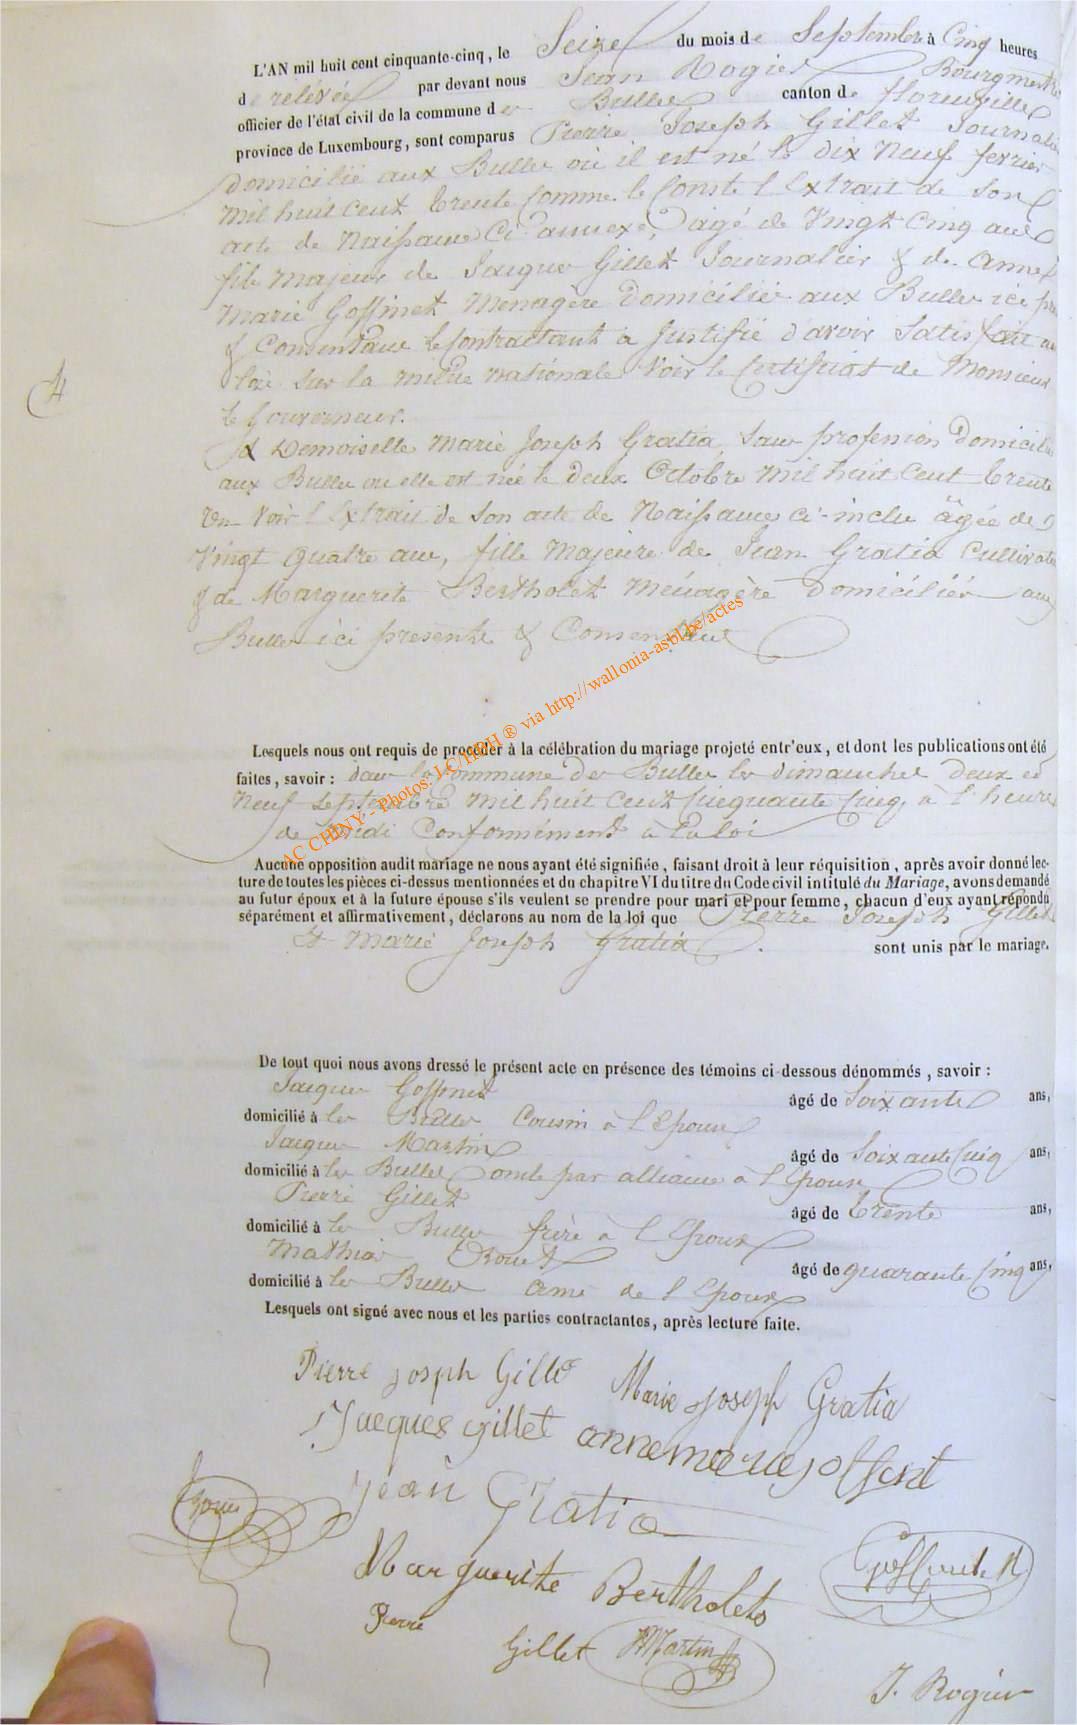 L'AN mil huit cent cinquante-cinq, le Seize du mois de Septembre à Cinq heures
de relévée par devant nous Jean Rogier Bourgmestre
officier de l'état civil de la commune des Bulles canton de florenville
province de Luxembourg, sont comparus Pierre Joseph Gillet Journalier
domicilié aux Bulles où il est né le dix Neuf fevrier
Mil huit cent trente Comme le Conste l'Extrait de Son
acte de Naissance Ci annexé, agé de Vingt Cinq ans
fils majeur de Jacques Gillet Journalier & de Anne
Marie Goffinet Menagère Domiciliés aux Bulles ici
& Consentans le Contractant a Justifié d'avoir Satisfait
loi Sur la milice Nationale Voir le Certificat de Monsieur
le Gouverneur.
& Demoiselle Marie Joseph Gratia, Sans profession Domiciliée
aux Bulles ou elle est née le deux Octobre Mil huit Cent trente
un Voir l'Extrait de Son acte de Naissance ci-inclu âgée de
Vingt quatre ans, fille Majeure de Jean Gratia Cultivateur
& de Marguerite Bertholet Ménagère Domiciliés aux
Bulles ici presents & Consentans
H
Lesquels nous ont requis de procéder à la célébration du mariage projeté entr'eux, et dont les publications ont été
faites, savoir : dans la Commune des Bulles les dimanches deux et
Neuf Septembre Mil huit Cent Cinquante Cinq, à l'heure
de Midi Conformément à la loi
Aucune opposition audit mariage ne nous ayant été signifiée, faisant droit à leur réquisition, après avoir donné lec-
ture de toutes les pièces ci-dessus mentionnées et du chapitre VI du titre du Code civil intitulé du Mariage, avons demandé
au futur époux et à la future épouse s'ils veulent se prendre pour mari et pour femme, chacun d'eux ayant répondu
séparément et affirmativement, déclarons au nom de la loi que Pierre Joseph Gillet
& Marie Joseph Gratia sont unis par le mariage.
De tout quoi nous avons dressé le présent acte en présence des témoins ci-dessous dénommés, savoir :
Jacques Goffinet âgé de Soixante ans,
domicilié à les Bulles Cousin à l'Epoux
Jacques Martin âgé de Soixante Cinq ans,
domicilié à les Bulles oncle par alliance à l'Epoux
Pierre Gillet âgé de trente ans,
domicilié à les Bulles frère à l'Epoux
Mathias âgé de quarante Cinq ans,
domicilié à les Bulles ami de l'Epoux
Lesquels ont signé avec nous et les parties contractantes, après lecture faite.
Pierre joseph Gillet Marie joseph Gratia
Jacques gillet anne marie
jean Gratia
Marguerite Bertholets
Pierre Gillet Martin
J. Rogier
AC CHINY - Photos: LC/HPH ® via http://wallonia-asbl.be/actes